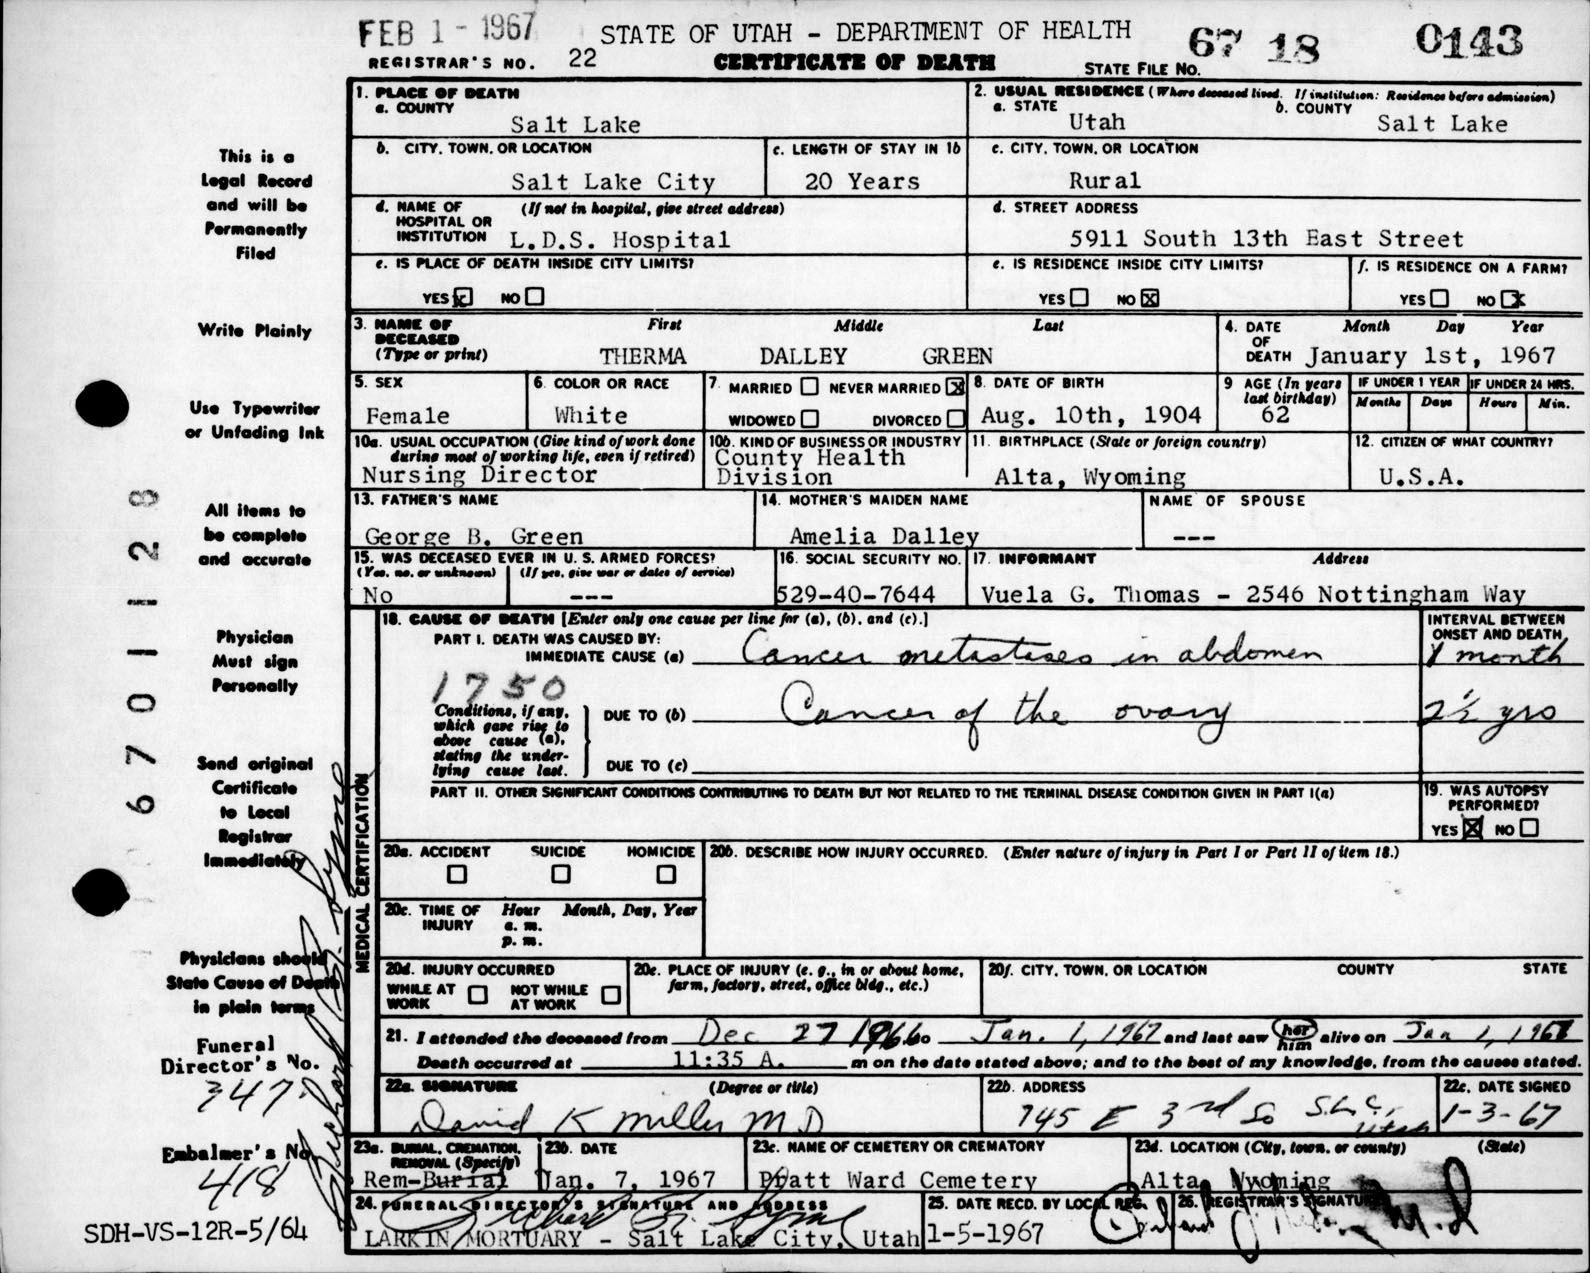 FEB 1 - 1967
STATE OF UTAH - DEPARTMENT OF HEALTH
67 18 0143
REGISTRAR'S NO. 22
CERTIFICATE OF DEATH
STATE FILE NO.
1. PLACE OF DEATH
a. COUNTY
Salt Lake
2. USUAL RESIDENCE (Where deceased lived. If institution: Residence before admission)
a. STATE
Utah
b. COUNTY
Salt Lake
b. CITY, TOWN, OR LOCATION
Salt Lake City
c. LENGTH OF STAY IN 1b
20 Years
c. CITY, TOWN, OR LOCATION
Rural
d. NAME OF HOSPITAL OR INSTITUTION
(If not in hospital, give street address)
L.D.S. Hospital
d. STREET ADDRESS
5911 South 13th East Street
e. IS PLACE OF DEATH INSIDE CITY LIMITS?
YES x NO
e. IS RESIDENCE INSIDE CITY LIMITS?
YES NO X
f. IS RESIDENCE ON A FARM?
YES NO X
3. NAME OF DECEASED
(Type or print)
First Middle Last
THERMA DALLEY GREEN
4. DATE OF DEATH
Month Day Year
January 1st, 1967
5. SEX
Female
6. COLOR OR RACE
White
7. MARRIED NEVER MARRIED X
WIDOWED DIVORCED
8. DATE OF BIRTH
Aug. 10th, 1904
9 AGE (In years last birthday)
62
IF UNDER 1 YEAR
Months Days
IF UNDER 24 HRS.
Hours Min.
10a. USUAL OCCUPATION (Give kind of work done during most of working life, even if retired)
Nursing Director
10b. KIND OF BUSINESS OR INDUSTRY
County Health
Division
11. BIRTHPLACE (State or foreign country)
Alta, Wyoming
12. CITIZEN OF WHAT COUNTRY?
U.S.A.
13. FATHER'S NAME
George B. Green
14. MOTHER'S MAIDEN NAME
Amelia Dalley
NAME OF SPOUSE
---
15. WAS DECEASED EVER IN U. S. ARMED FORCES?
(Yes, no, or unknown) (If yes, give war or dates of service)
No ---
16. SOCIAL SECURITY NO.
529-40-7644
17. INFORMANT Address
Vuela G. Thomas - 2546 Nottingham Way
18. CAUSE OF DEATH [Enter only one cause per line for (a), (b), and (c).]
PART I. DEATH WAS CAUSED BY:
IMMEDIATE CAUSE (a) Cancer metastases in abdomen
INTERVAL BETWEEN ONSET AND DEATH
1 month
1750
Conditions, if any, which gave rise to above cause (a), stating the underlying cause last.
DUE TO (b) Cancer of the ovary
2½ yrs
DUE TO (c)
PART II. OTHER SIGNIFICANT CONDITIONS CONTRIBUTING TO DEATH BUT NOT RELATED TO THE TERMINAL DISEASE CONDITION GIVEN IN PART I(a)
19. WAS AUTOPSY PERFORMED?
YES X NO
MEDICAL CERTIFICATION
20a. ACCIDENT SUICIDE HOMICIDE
20b. DESCRIBE HOW INJURY OCCURRED. (Enter nature of injury in Part I or Part II of item 18.)
20c. TIME OF INJURY
Hour Month, Day, Year
a. m.
p. m.
20d. INJURY OCCURRED
WHILE AT WORK NOT WHILE AT WORK
20e. PLACE OF INJURY (e. g., in or about home, farm, factory, street, office bldg., etc.)
20f. CITY, TOWN, OR LOCATION COUNTY STATE
21. I attended the deceased from Dec 27 1966 to Jan. 1, 1967 and last saw her him alive on Jan 1, 1967
Death occurred at 11:35 A. m on the date stated above; and to the best of my knowledge, from the causes stated.
22a. SIGNATURE (Degree or title)
David K Miller M D
22b. ADDRESS
745 E 3rd So S.L.C., Utah
22c. DATE SIGNED
1-3-67
23a. BURIAL, CREMATION, REMOVAL (Specify)
Rem-Burial
23b. DATE
Jan. 7, 1967
23c. NAME OF CEMETERY OR CREMATORY
Pratt Ward Cemetery
23d. LOCATION (City, town, or county) (State)
Alta, Wyoming
24. FUNERAL DIRECTOR'S SIGNATURE AND ADDRESS
LARKIN MORTUARY - Salt Lake City, Utah
25. DATE RECD. BY LOCAL REG.
1-5-1967
26. REGISTRAR'S SIGNATURE
M.D
This is a
Legal Record
and will be
Permanently
Filed
Write Plainly
Use Typewriter
or Unfading Ink
All items to
be complete
and accurate
Physician
Must sign
Personally
Send original
Certificate
to Local
Registrar
Immediately
Physicians should
State Cause of Death
in plain terms
Funeral
Director's No.
347
Embalmer's No.
418
SDH-VS-12R-5/64
6701128